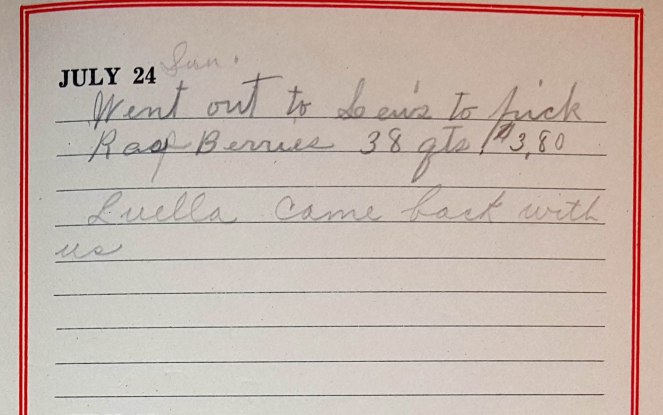 JULY 24 Sun.
Went out to Lew's to pick
Rasp Berries 38 qts $3.80
Luella came back with
us